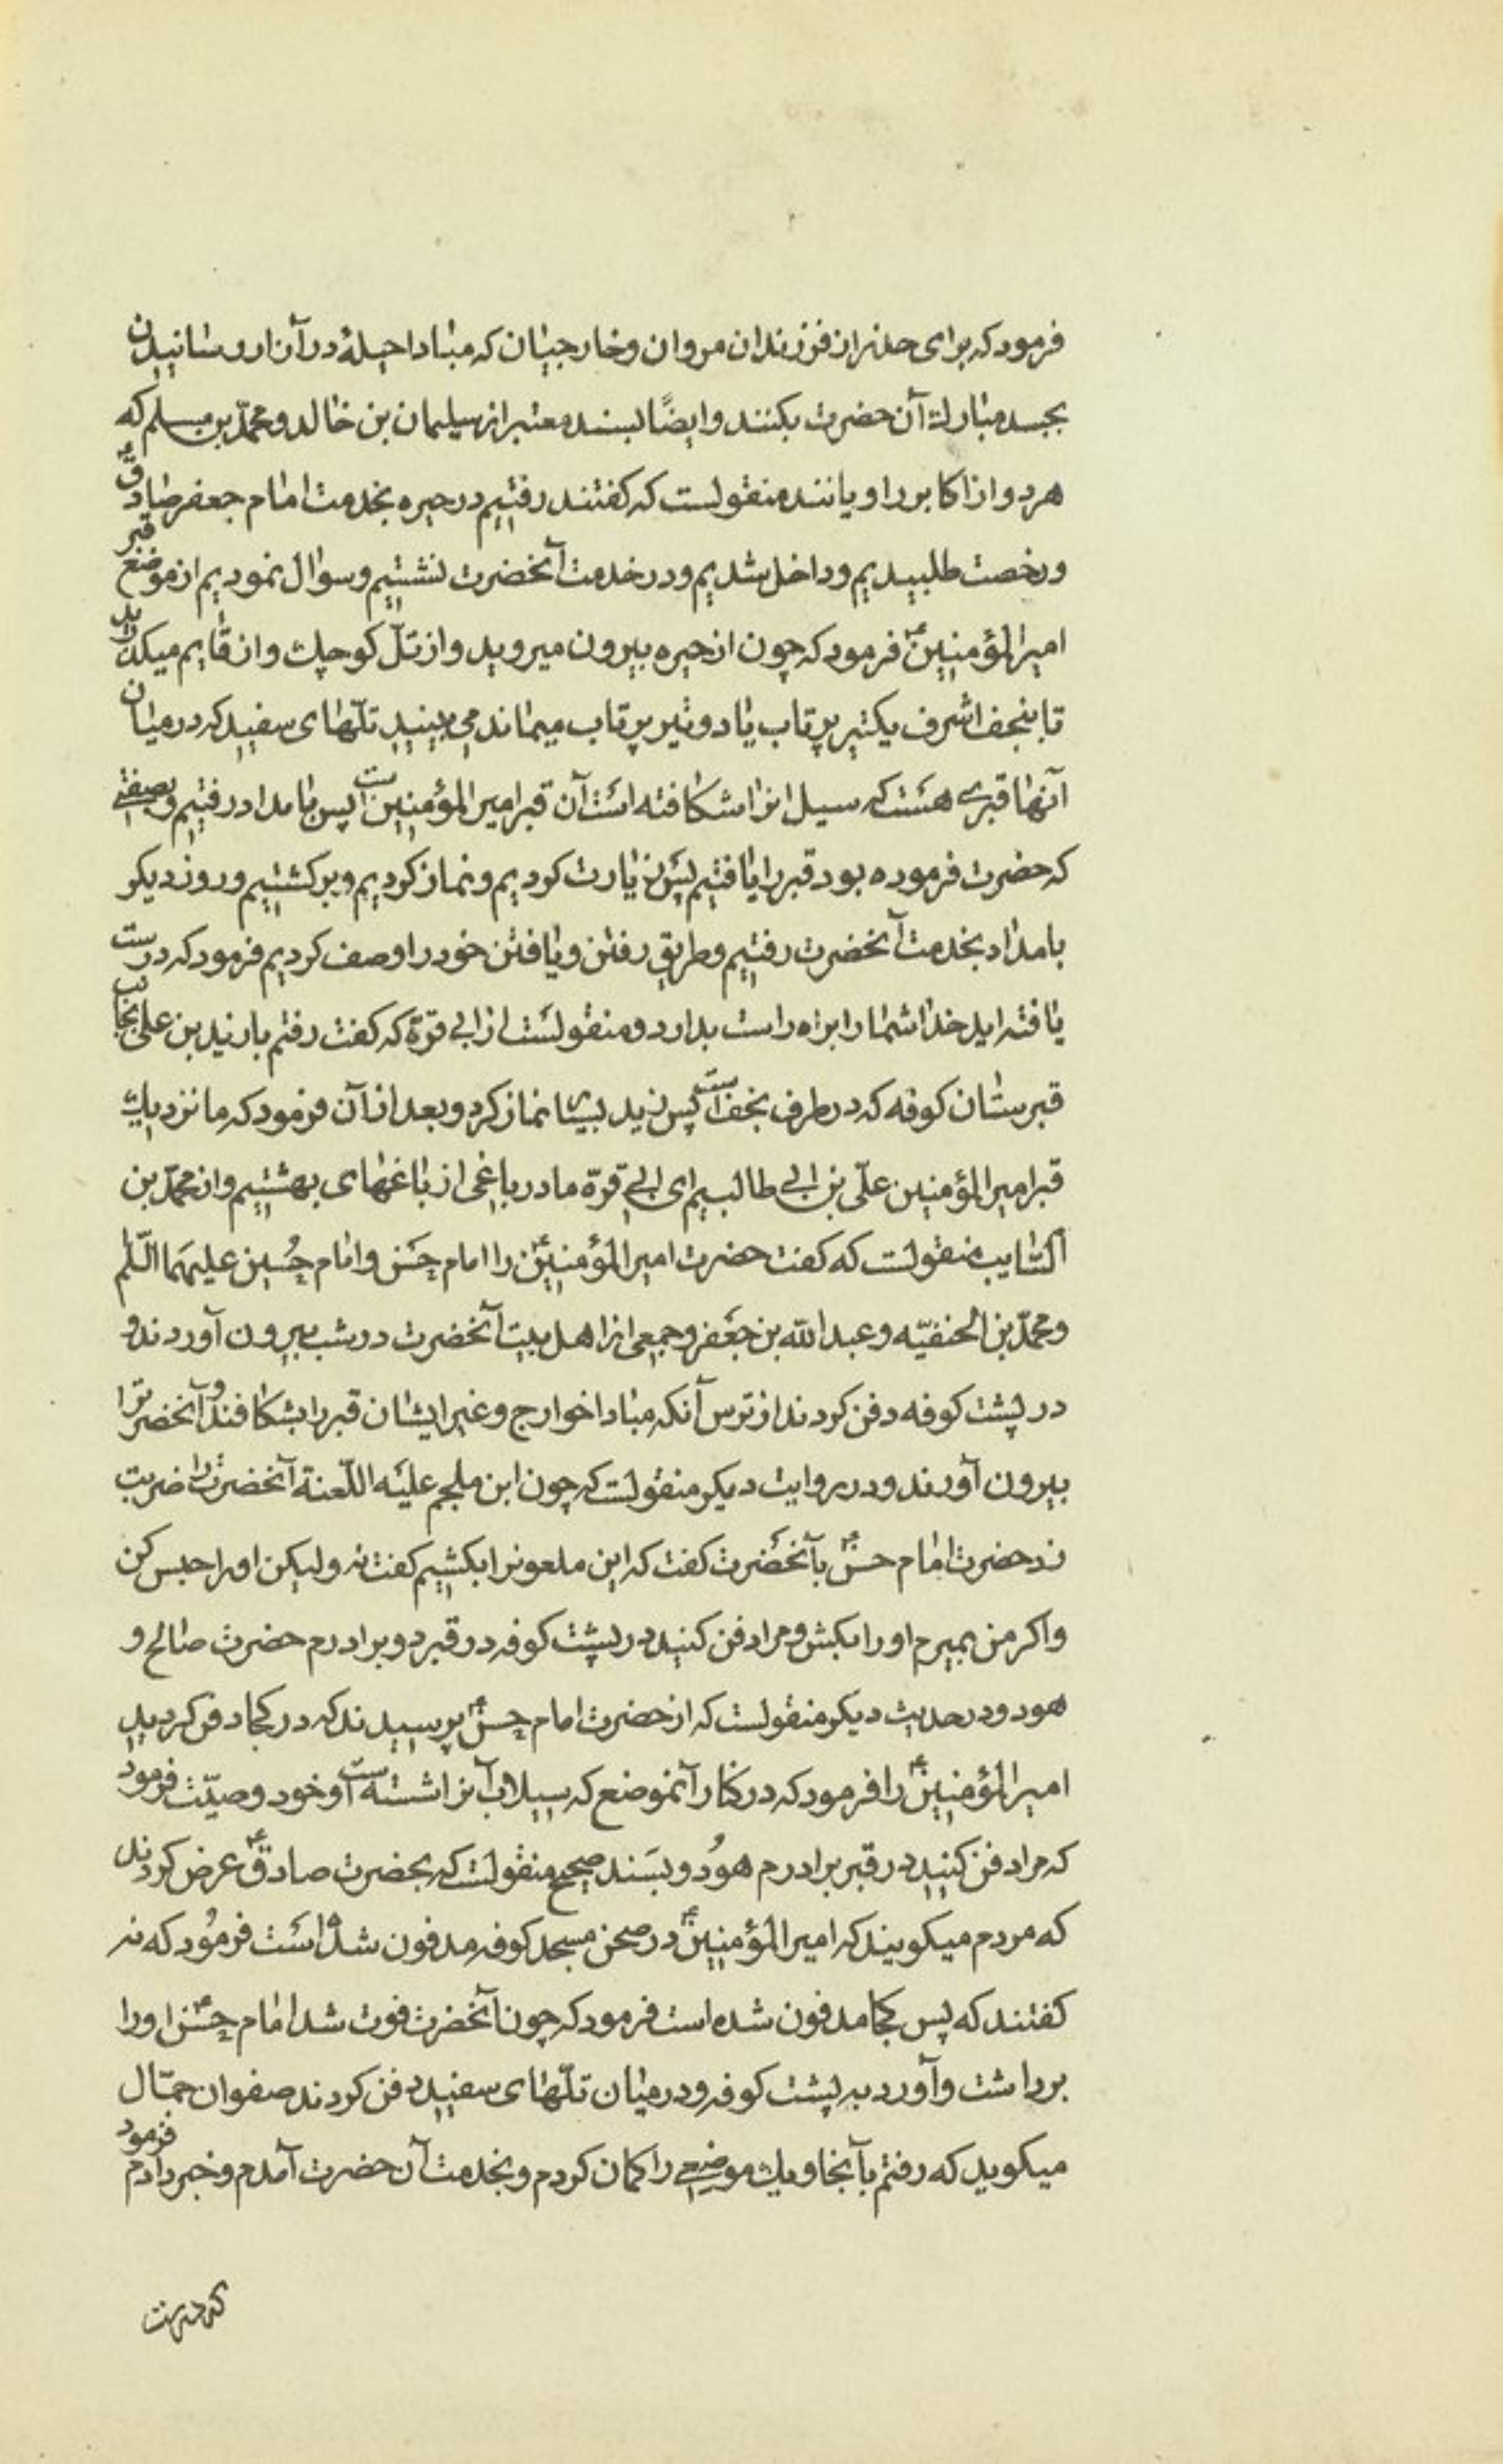 فرمود که برای حذر از فرزندان مروان و خارجیان که مبادا حیلهٔ در آزار رسانیدن
بجسد مبارك آن حضرت بکنند و ایضًا بسند معتبر از سلیمان بن خالد و محمّد بن مسلم که
هر دو از اکابر راویانند منقولست که کفتند رفتیم در حیره بخدمت امام جعفر صادقؑ
و رخصت طلبیدیم و داخل شدیم و در خدمت آنحضرت نشتیم و سوال نمودیم از موضع قبر
امیر المؤمنینؑ فرمود که چون از حیره بیرون میروید و از تلّ کوچك و از قایم میکذرید
تا بنجف اشرف یکتیر پرتاب یا دو تیر پرتاب میماند می بینید تلّهای سفید که در میان
آنها قبری هست که سیل انرا شکافته است آن قبر امیر المؤمنین است پس بامداد رفتیم و بصفتی
که حضرت فرموده بود قبر را یافتیم پس زیارت کردیم و نماز کردیم و برکشتیم و روز دیکر
بامداد بخدمت آنحضرت رفتیم و طریق رفتن و یافتن خود را وصف کردیم فرمود که درست
یافته اید خدا شما را براه راست بدارد و منقولست از ابی قرّة که کفت رفتم با زید بن علی بجانب
قبرستان کوفه که در طرف نجف است پس زید بسیا نماز کرد و بعد از آن فرمود که ما نزدیك
قبر امیر المؤمنین علّی بن ابی طالبیم ای ابی قرّة ما در باغی از باغهای بهشتیم و از محمّد بن
السّایب منقولست که کفت حضرت امیر المؤمنینؑ را امام حَسَن و امام حُسین علیهما السّلم
و محمّد بن الحنفیّه و عبد الله بن جعَفر و جمعی از اهل بیت آنحضرت در شب بیرون آوردند و
در پشت کوفه دفن کردند از ترس آنکه مبادا خوارج و غیر ایشان قبر را بشکافند و آنحضرترا
بیرون آورند و در روایت دیکر منقولست که چون ابن ملجم علیه اللّعنة آنحضرت را ضربت
زد حضرت امام حسنؑ بآنحضرت کفت که این ملعونرا بکشیم کفت نه ولیکن او را حبس کن
و اکر من بمیرم او را بکش و مرا دفن کنید در پشت کوفه در قبر دو برادرم حضرت صالح و
هود و در حدیث دیکر منقولست که از حضرت امام حسنؑ پرسیدند که در کجا دفن کردید
امیر المؤمنینؑ را فرمود که در کنار آنموضع که سیلاب آنرا شسته است و خود وصیّت فرمود
که مرا دفن کنید در قبر برادرم هوُد و بسَند صحیح منقولست که بحضرت صادقؑ عرض کردند
که مردم میکویند که امیر المؤمنینؑ در صحن مسجد کوفه مدفون شده است فرموُد که نه
کفتند که پس کجا مدفون شده است فرمود که چون آنحضرت فوت شد امام حَسنؑ او را
برداشت و آورد به پشت کوفه و در میان تلّهای سفید دفن کردند صفوان جمّال
میکوید که رفتم بآنجا و یك موضعی را کمان کردم و بخدمت آن حضرت آمدم و خبر دادم فرمود
که درست